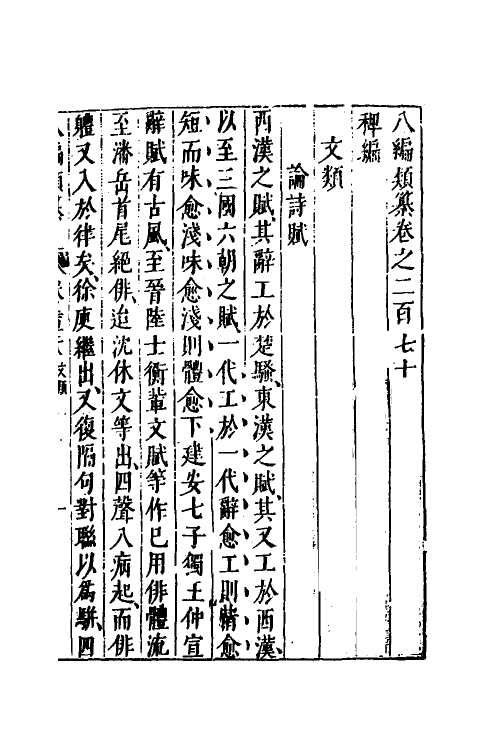 八編類纂卷之二百七十
稗編
文類
論詩賦
西漢之賦其辭工於楚騷東漢之賦其又工於西漢
以至三國六朝之賦一代工於一代辭愈工則情愈
短而味愈淺味愈淺則體愈下建安七子獨王仲宣
辭賦有古風至晉陸士衡輩文賦等作已用俳體流
至潘岳首尾絕俳迨沈休文等出四聲八病起而俳
體又入於律矣徐庾繼出又復隔句對聯以為駢四
八編類纂 文類 一